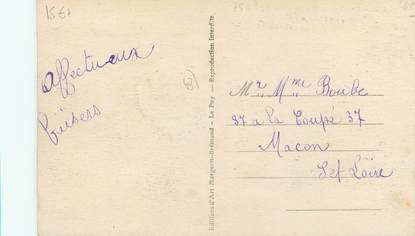 15€
Affectueux
baisers
Editions d'Art Margerit-Brémond - Le Puy — Reproduction Interdite
Mr Mme Boube
37 à la Coupé 37
Macon
Set Loire